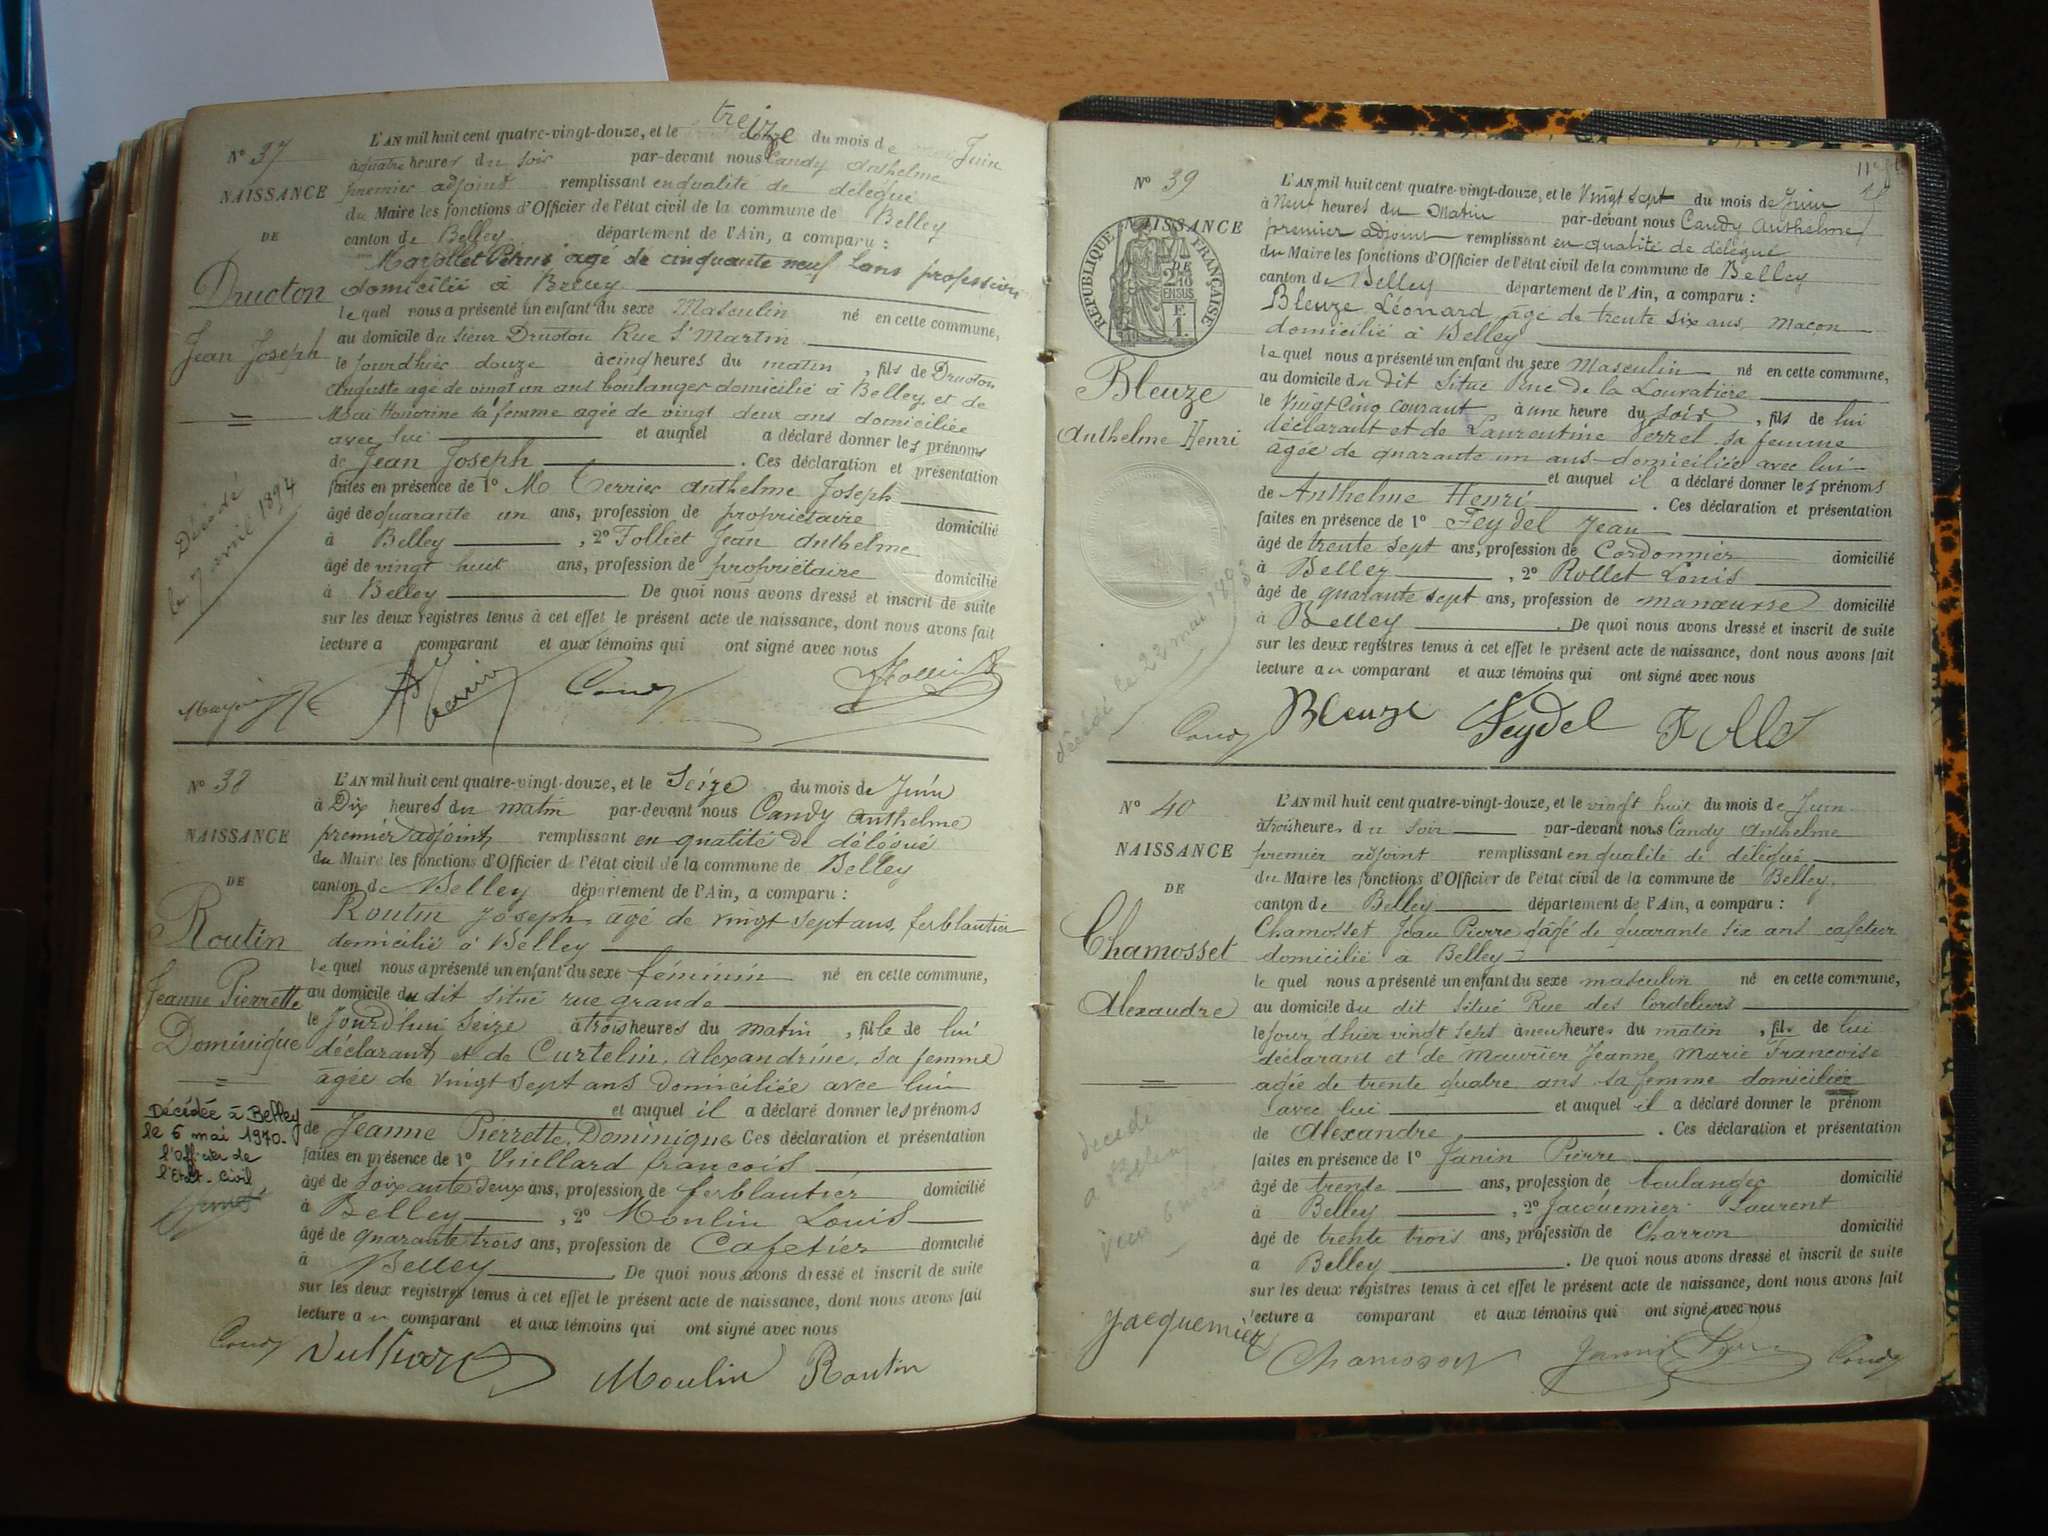 N° 37
NAISSANCE
DE
Dructon
Jean Joseph
Décédé
le 7 avril 1894
L'AN mil huit cent quatre-vingt-douze, et le treize du mois de Juin
à quatre heures du soir par-devant nous Candy Anthelme
premier adjoint remplissant en qualité de délégué
du Maire les fonctions d'Officier de l'état civil de la commune de Belley
canton de Belley département de l'Ain, a comparu :
âgé de cinquante neuf sans profession
domicilié à Belley
lequel nous a présenté un enfant du sexe Masculin né en cette commune,
au domicile du sieur Dructon Rue St Martin
le jourdhier douze à cinq heures du matin, fils de Dructon
Auguste agé de vingt un ans boulanger domicilié à Belley et de
Honorine sa femme agée de vingt deux ans domiciliée
avec lui et auquel a déclaré donner les prénoms
de Jean Joseph. Ces déclaration et présentation
faites en présence de 1° M Terrier Anthelme Joseph
âgé de quarante un ans, profession de propriétaire domicilié
à Belley, 2° Folliet Jean Anthelme
âgé de vingt huit ans, profession de propriétaire domicilié
à Belley De quoi nous avons dressé et inscrit de suite
sur les deux registres tenus à cet effet le présent acte de naissance, dont nous avons fait
lecture a comparant et aux témoins qui ont signé avec nous
Candy
N° 38
NAISSANCE
DE
Routin
Jeanne Pierrette
Dominique
Décédée à Belley
le 6 mai 1970.
l'Officier de
l'Etat-Civil
L'AN mil huit cent quatre-vingt-douze, et le Seize du mois de Juin
à Dix heures du matin par-devant nous Candy Anthelme
premier adjoint remplissant en qualité de délégué
du Maire les fonctions d'Officier de l'état civil de la commune de Belley
canton de Belley département de l'Ain, a comparu :
Routin Joseph, agé de vingt sept ans, ferblantier
domicilié à Belley
lequel nous a présenté un enfant du sexe féminin né en cette commune,
au domicile du dit situé rue grande
le Jourd'hui Seize à trois heures du matin, fille de lui
déclarant et de Curtelin Alexandrine, sa femme
agée de vingt sept ans domiciliée avec lui
et auquel il a déclaré donner les prénoms
de Jeanne Pierrette Dominique Ces déclaration et présentation
faites en présence de 1° Vuillard françois
âgé de Soixante deux ans, profession de ferblantier domicilié
à Belley, 2° Moulin Louis
âgé de quarante trois ans, profession de Cafetier domicilié
à Belley. De quoi nous avons dressé et inscrit de suite
sur les deux registres tenus à cet effet le présent acte de naissance, dont nous avons fait
lecture au comparant et aux témoins qui ont signé avec nous
Candy Vuillard Moulin Routin
N° 39
NAISSANCE
DE
REPUBLIQUE FRANÇAISE
2/10 EN SUS
1 F.
Bleuze
Anthelme Henri
décédé le 22 mai 1893
L'AN mil huit cent quatre-vingt-douze, et le Vingt sept du mois de Juin
à Neuf heures du Matin par-devant nous Candy Anthelme
premier adjoint remplissant en qualité de délégué
du Maire les fonctions d'Officier de l'état civil de la commune de Belley
canton de Belley département de l'Ain, a comparu :
Bleuze Léonard, âgé de trente six ans, maçon
domicilié à Belley
lequel nous a présenté un enfant du sexe Masculin né en cette commune,
au domicile du dit situé Rue de la Louvatière
le Vingt Cinq courant à une heure du soir, fils de lui
déclarant et de Laurentine Verret sa femme
agée de quarante un ans domiciliée avec lui
et auquel il a déclaré donner les prénoms
de Anthelme Henri. Ces déclaration et présentation
faites en présence de 1° Feydel Jean
âgé de trente sept ans, profession de Cordonnier domicilié
à Belley, 2° Rollet Louis
âgé de quarante sept ans, profession de manœuvre domicilié
à Belley. De quoi nous avons dressé et inscrit de suite
sur les deux registres tenus à cet effet le présent acte de naissance, dont nous avons fait
lecture au comparant et aux témoins qui ont signé avec nous
Candy Bleuze Feydel
N° 40
NAISSANCE
DE
Chamosset
Alexandre
décédé
à Belley
L'AN mil huit cent quatre-vingt-douze, et le vingt huit du mois de Juin
à trois heures du soir par-devant nous Candy Anthelme
premier adjoint remplissant en qualité de délégué
du Maire les fonctions d'Officier de l'état civil de la commune de Belley.
canton de Belley département de l'Ain, a comparu :
Chamosset Jean Pierre âgé de quarante six ans cafetier
domicilié à Belley
lequel nous a présenté un enfant du sexe masculin né en cette commune,
au domicile du dit situé Rue des Cordeliers
le jour d'hier vingt sept à neuf heures du matin, fils de lui
déclarant et de Maurier Jeanne Marie Francoise
agée de trente quatre ans sa femme domiciliée
avec lui et auquel il a déclaré donner le prénom
de Alexandre. Ces déclaration et présentation
faites en présence de 1° Janin Pierre
âgé de trente ans, profession de boulanger domicilié
à Belley, 2° Jacquemier Laurent
âgé de trente trois ans, profession de Charron domicilié
a Belley. De quoi nous avons dressé et inscrit de suite
sur les deux registres tenus à cet effet le présent acte de naissance, dont nous avons fait
lecture a comparant et aux témoins qui ont signé avec nous
Jacquemier Chamosset Janin Candy